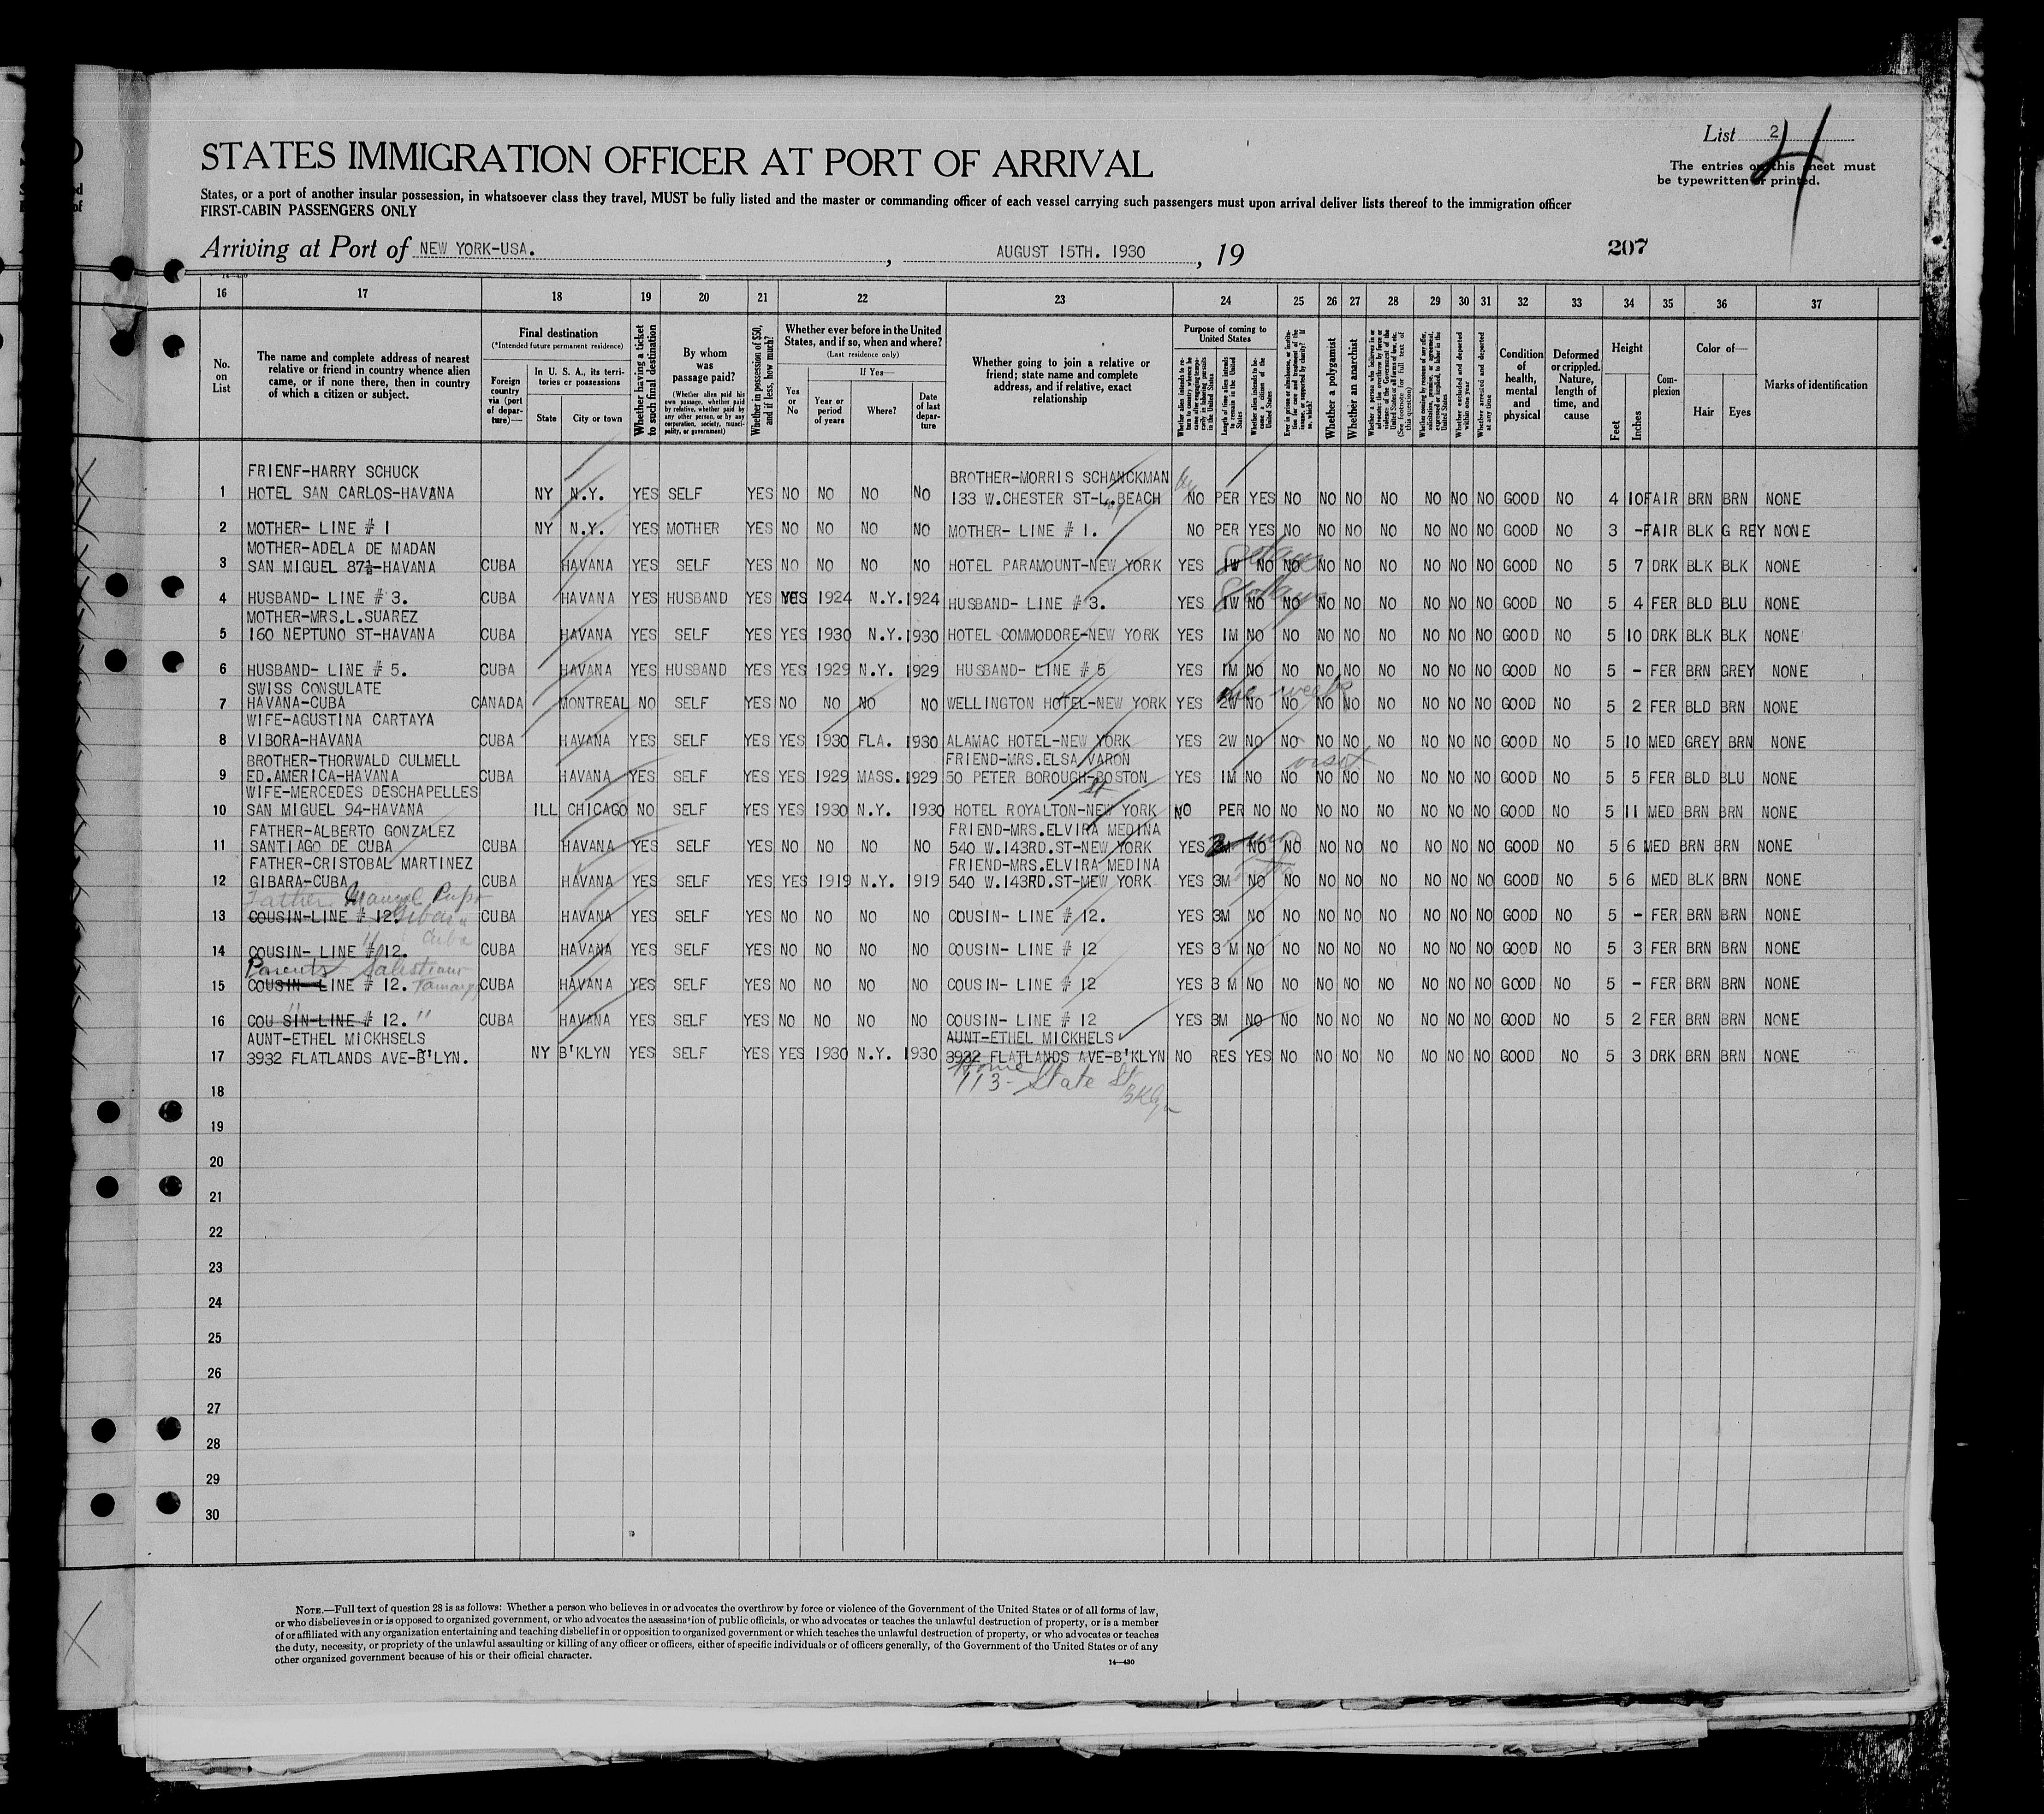 List 2
4
The entries on this sheet must
be typewritten or printed.
STATES IMMIGRATION OFFICER AT PORT OF ARRIVAL
States, or a port of another insular possession, in whatsoever class they travel, MUST be fully listed and the master or commanding officer of each vessel carrying such passengers must upon arrival deliver lists thereof to the immigration officer
FIRST-CABIN PASSENGERS ONLY
Arriving at Port of NEW YORK-USA. , AUGUST 15TH. 1930 , 19
207
16 17 18 19 20 21 22 23 24 25 26 27 28 29 30 31 32 33 34 35 36 37
No. on List
The name and complete address of nearest relative or friend in country whence alien came, or if none there, then in country of which a citizen or subject.
Final destination
(*Intended future permanent residence)
Foreign country via (port of departure)—
In U. S. A., its territories or possessions
State City or town
Whether having a ticket to such final destination
By whom was passage paid?
(Whether alien paid his own passage, whether paid by relative, whether paid by any other person, or by any corporation, society, municipality, or government)
Whether in possession of $50, and if less, how much?
Whether ever before in the United States, and if so, when and where?
(Last residence only)
Yes or No
If Yes—
Year or period of years Where? Date of last departure
Whether going to join a relative or friend; state name and complete address, and if relative, exact relationship
Purpose of coming to United States
Length of time alien intends to remain in the United States
Whether alien intends to become a citizen of the United States
Whether a polygamist
Whether an anarchist
Condition of health, mental and physical
Deformed or crippled. Nature, length of time, and cause
Height
Feet Inches
Complexion
Color of—
Hair Eyes
Marks of identification
FRIENF-HARRY SCHUCK BROTHER-MORRIS SCHANCKMAN
1 HOTEL SAN CARLOS-HAVANA NY N.Y. YES SELF YES NO NO NO NO 133 W.CHESTER ST-L.BEACH NO PER YES NO NO NO NO NO NO NO GOOD NO 4 10 FAIR BRN BRN NONE
2 MOTHER- LINE # 1 NY N.Y. YES MOTHER YES NO NO NO NO MOTHER- LINE # 1. NO PER YES NO NO NO NO NO NO NO GOOD NO 3 - FAIR BLK G REY NONE
MOTHER-ADELA DE MADAN
3 SAN MIGUEL 87½-HAVANA CUBA HAVANA YES SELF YES NO NO NO NO HOTEL PARAMOUNT-NEW YORK YES 1W NO NO NO NO NO NO NO NO GOOD NO 5 7 DRK BLK BLK NONE
4 HUSBAND- LINE # 3. CUBA HAVANA YES HUSBAND YES YES 1924 N.Y. 1924 HUSBAND- LINE # 3. YES 1W NO NO NO NO NO NO NO NO GOOD NO 5 4 FER BLD BLU NONE
MOTHER-MRS.L.SUAREZ
5 160 NEPTUNO ST-HAVANA CUBA HAVANA YES SELF YES YES 1930 N.Y. 1930 HOTEL COMMODORE-NEW YORK YES 1M NO NO NO NO NO NO NO NO GOOD NO 5 10 DRK BLK BLK NONE
6 HUSBAND- LINE # 5. CUBA HAVANA YES HUSBAND YES YES 1929 N.Y. 1929 HUSBAND- LINE # 5 YES 1M NO NO NO NO NO NO NO NO GOOD NO 5 - FER BRN GREY NONE
SWISS CONSULATE one week
7 HAVANA-CUBA CANADA MONTREAL NO SELF YES NO NO NO NO WELLINGTON HOTEL-NEW YORK YES 2W NO NO NO NO NO NO NO NO GOOD NO 5 2 FER BLD BRN NONE
WIFE-AGUSTINA CARTAYA
8 VIBORA-HAVANA CUBA HAVANA YES SELF YES YES 1930 FLA. 1930 ALAMAC HOTEL-NEW YORK YES 2W NO NO NO NO NO NO NO NO GOOD NO 5 10 MED GREY BRN NONE
BROTHER-THORWALD CULMELL FRIEND-MRS.ELSA VARON visit
9 ED.AMERICA-HAVANA CUBA HAVANA YES SELF YES YES 1929 MASS. 1929 50 PETER BOROUGH-BOSTON YES 1M NO NO NO NO NO NO NO NO GOOD NO 5 5 FER BLD BLU NONE
WIFE-MERCEDES DESCHAPELLES St
10 SAN MIGUEL 94-HAVANA ILL CHICAGO NO SELF YES YES 1930 N.Y. 1930 HOTEL ROYALTON-NEW YORK NO PER NO NO NO NO NO NO NO NO GOOD NO 5 11 MED BRN BRN NONE
FATHER-ALBERTO GONZALEZ FRIEND-MRS.ELVIRA MEDINA
11 SANTIAGO DE CUBA CUBA HAVANA YES SELF YES NO NO NO NO 540 W.143RD.ST-NEW YORK YES 3M NO NO NO NO NO NO NO NO GOOD NO 5 6 MED BRN BRN NONE
FATHER-CRISTOBAL MARTINEZ FRIEND-MRS.ELVIRA MEDINA
12 GIBARA-CUBA CUBA HAVANA YES SELF YES YES 1919 N.Y. 1919 540 W.143RD.ST-MEW YORK YES 3M NO NO NO NO NO NO NO NO GOOD NO 5 6 MED BLK BRN NONE
Father Manuel Pupo
13 COUSIN-LINE # 12. Gibara CUBA HAVANA YES SELF YES NO NO NO NO COUSIN- LINE # 12. YES 3M NO NO NO NO NO NO NO NO GOOD NO 5 - FER BRN BRN NONE
" Cuba
14 COUSIN- LINE # 12. CUBA HAVANA YES SELF YES NO NO NO NO COUSIN- LINE # 12 YES 3 M NO NO NO NO NO NO NO NO GOOD NO 5 3 FER BRN BRN NONE
Parents
15 COUSIN-LINE # 12. CUBA HAVANA YES SELF YES NO NO NO NO COUSIN- LINE # 12 YES 3 M NO NO NO NO NO NO NO NO GOOD NO 5 - FER BRN BRN NONE
" "
16 COU SIN-LINE # 12. CUBA HAVANA YES SELF YES NO NO NO NO COUSIN- LINE # 12 YES 3M NO NO NO NO NO NO NO NO GOOD NO 5 2 FER BRN BRN NONE
AUNT-ETHEL MICKHSELS AUNT-ETHEL MICKHELS
17 3932 FLATLANDS AVE-B'LYN. NY B'KLYN YES SELF YES YES 1930 N.Y. 1930 3932 FLATLANDS AVE-B'KLYN NO RES YES NO NO NO NO NO NO NO GOOD NO 5 3 DRK BRN BRN NONE
Home
113- State St
18 BKlyn
19
20
21
22
23
24
25
26
27
28
29
30
NOTE.—Full text of question 28 is as follows: Whether a person who believes in or advocates the overthrow by force or violence of the Government of the United States or of all forms of law,
or who disbelieves in or is opposed to organized government, or who advocates the assassination of public officials, or who advocates or teaches the unlawful destruction of property, or is a member
of or affiliated with any organization entertaining and teaching disbelief in or opposition to organized government or which teaches the unlawful destruction of property, or who advocates or teaches
the duty, necessity, or propriety of the unlawful assaulting or killing of any officer or officers, either of specific individuals or of officers generally, of the Government of the United States or of any
other organized government because of his or their official character.
14—430